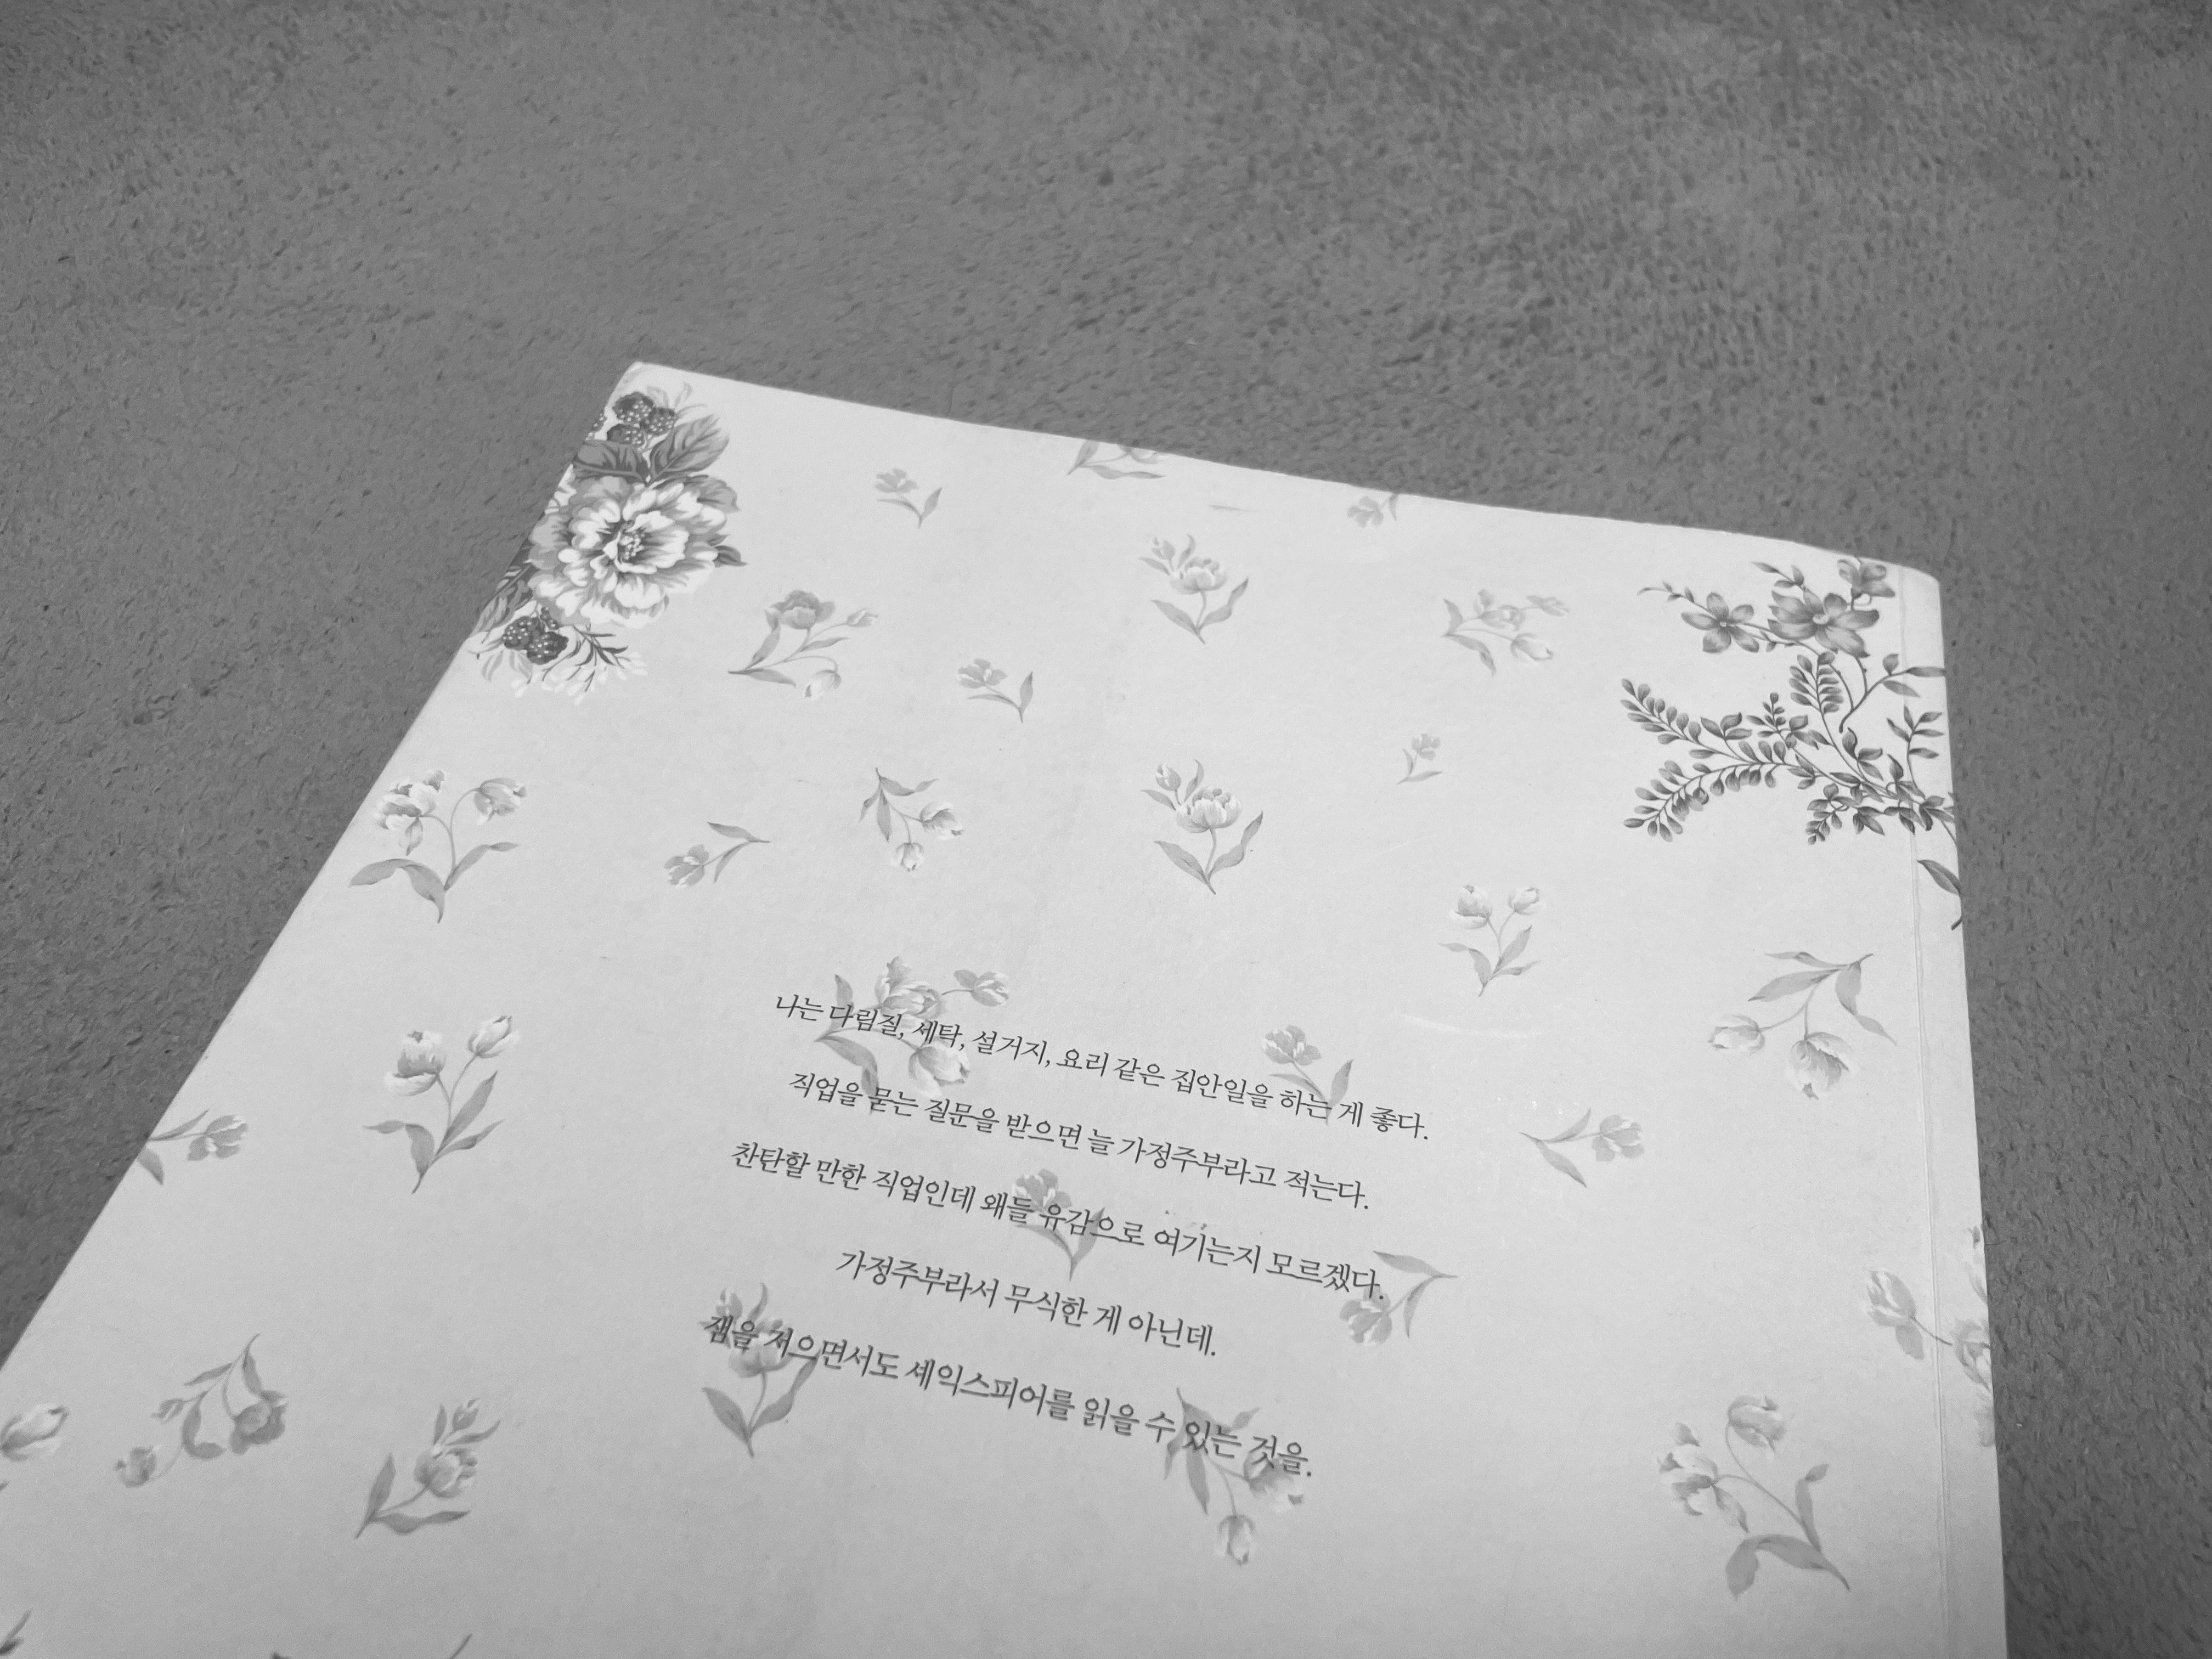 나는 다림질, 세탁, 설거지, 요리 같은 집안일을 하는 게 좋다.
직업을 묻는 질문을 받으면 늘 가정주부라고 적는다.
찬탄할 만한 직업인데 왜들 유감으로 여기는지 모르겠다.
가정주부라서 무식한 게 아닌데.
잼을 저으면서도 셰익스피어를 읽을 수 있는 것을.